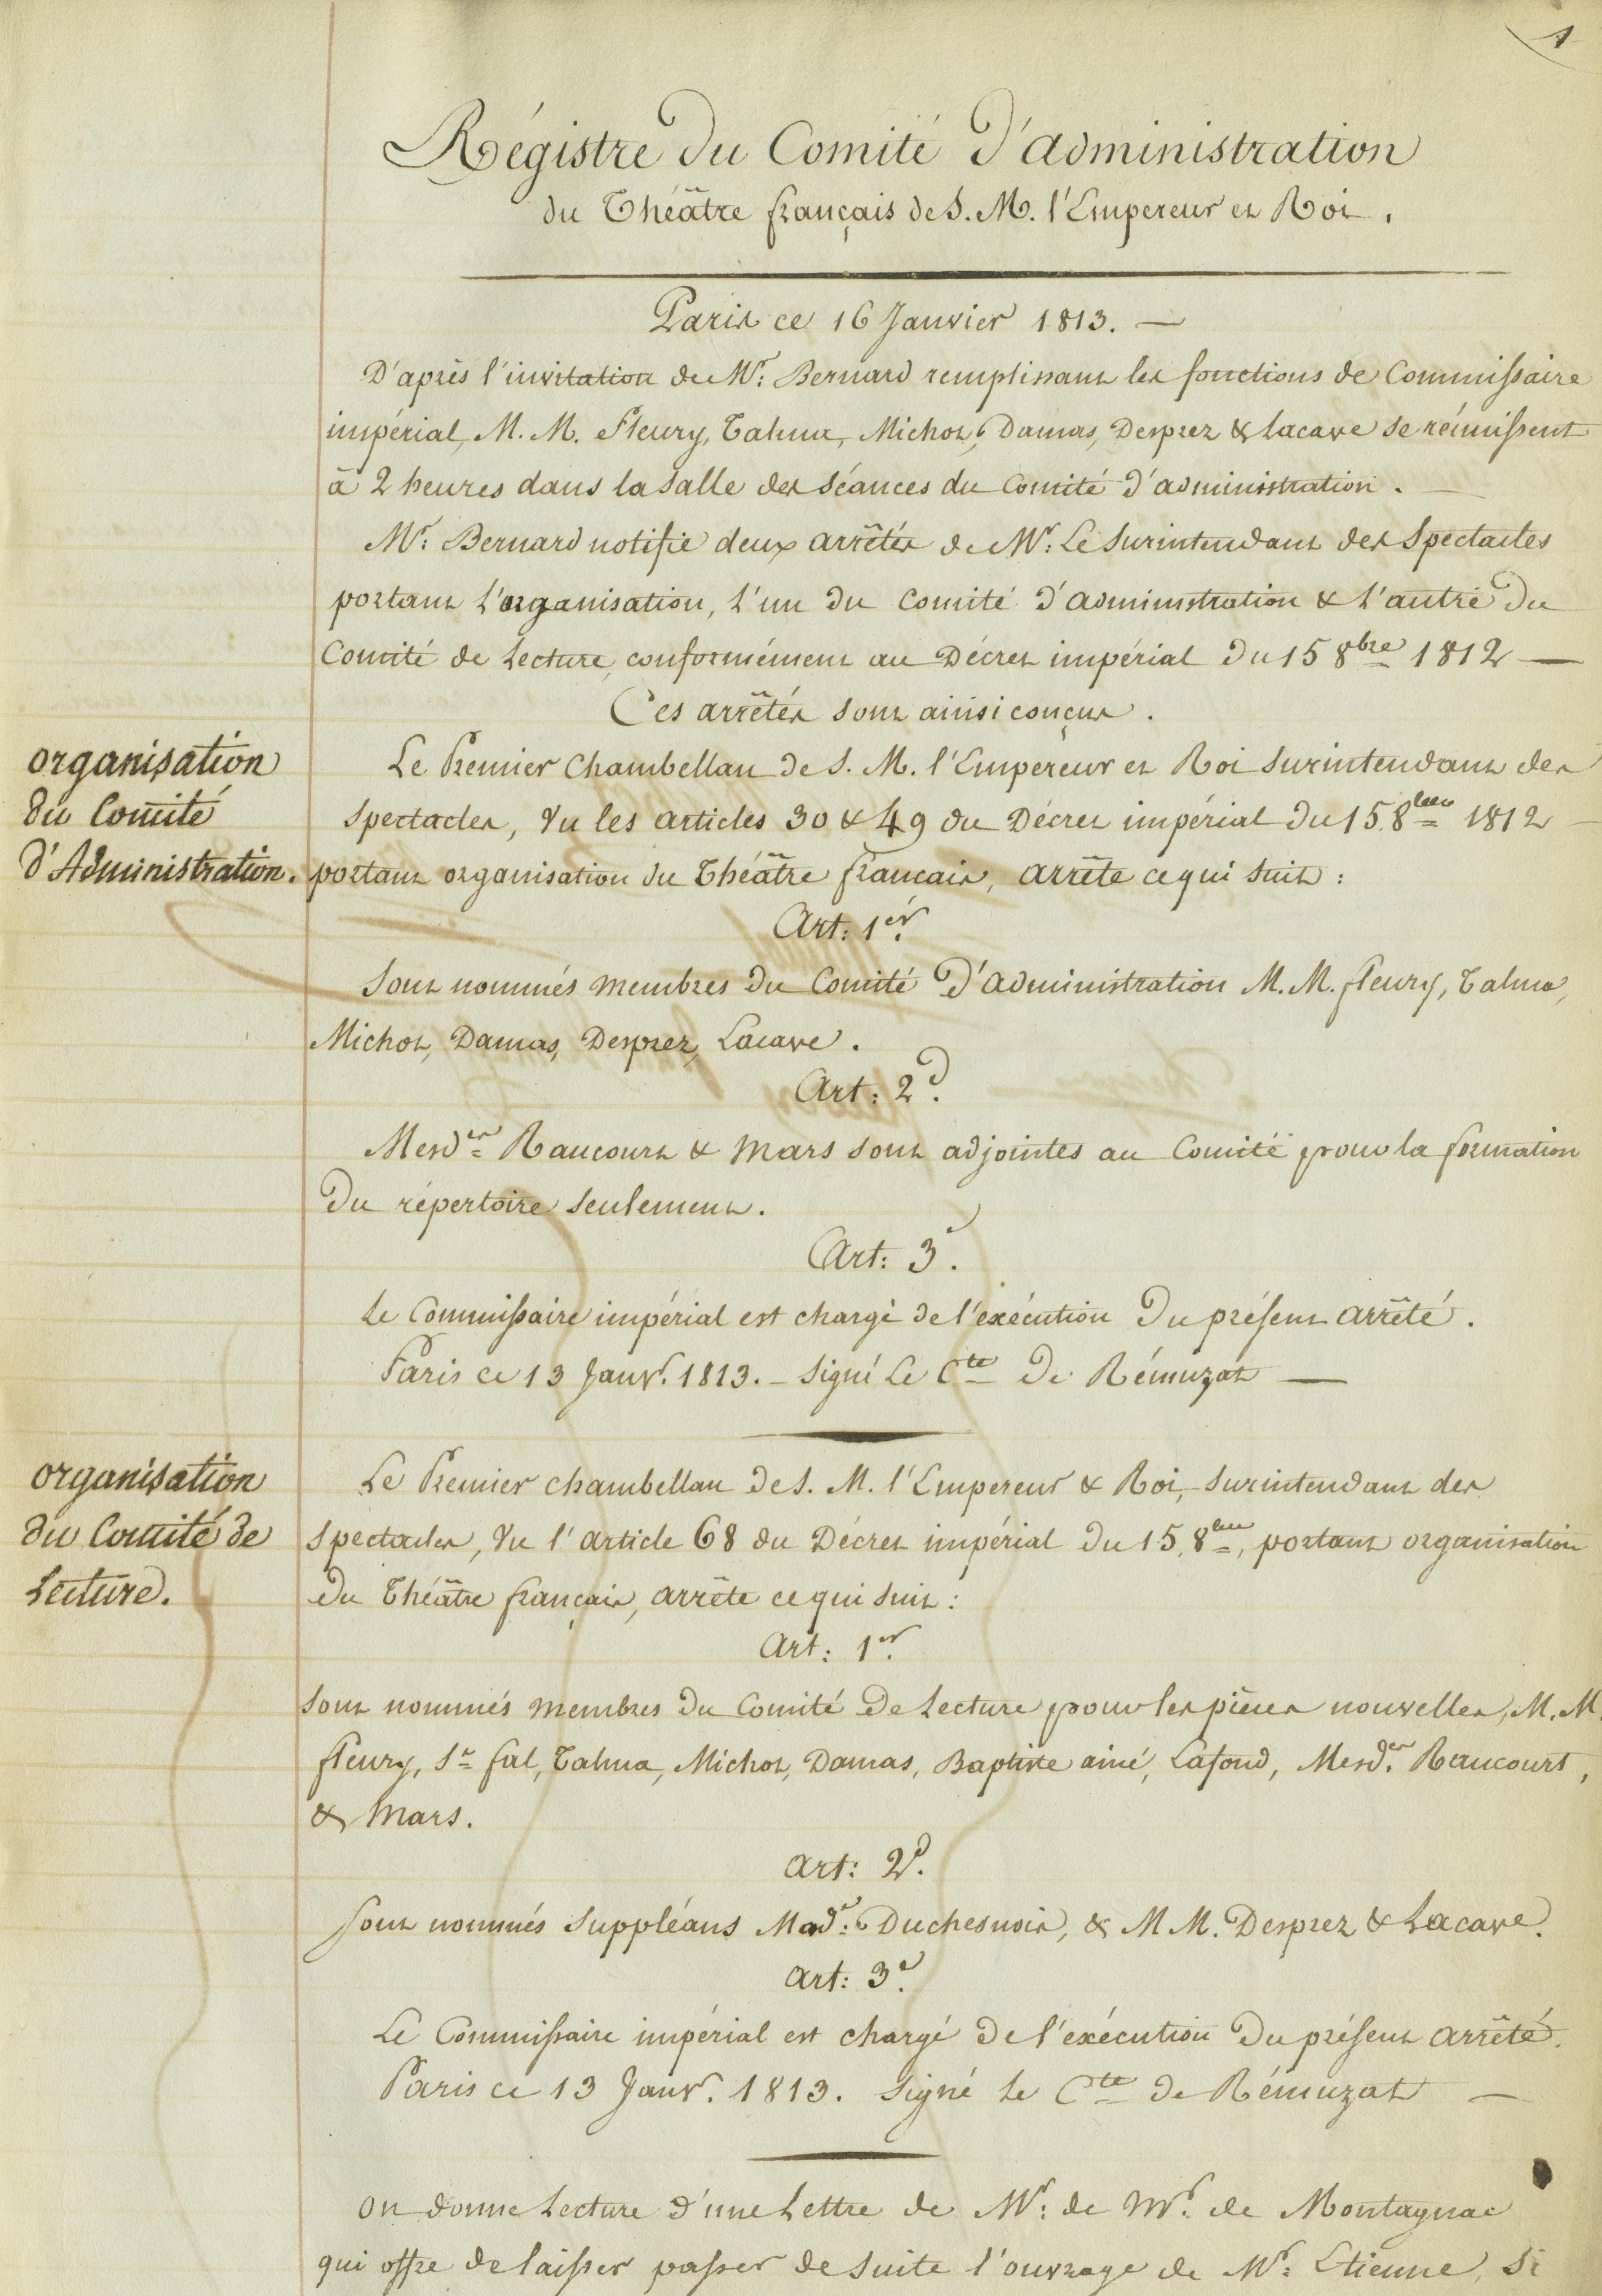 1
Régistre du Comité d'administration
du Théâtre français de S. M. l'Empereur et Roi.
Paris ce 16 Janvier 1813. —
D'après l'invitation de Mr: Bernard remplissant les fonctions de Commissaire
impérial, M. M. Fleury, Talma, Michot, Damas, Desprez & Lacave se réunissent
à 2 heures dans la salle des séances du Comité d'administration. —
Mr: Bernard notifie deux arrêtés de Mr: Le Surintendant des Spectacles
portant l'organisation, l'un du Comité d'administration & l'autre du
Comité de Lecture, conformément au Décret impérial du 15 8bre 1812 —
Ces arrêtés sont ainsi conçus.
organisation
du Comité
d'Administration.
Le Premier Chambellan de S. M. l'Empereur et Roi Surintendant des
spectacles, Vu les articles 30 & 49 du Décret impérial du 15 8bre 1812 —
portant organisation du Théâtre francais, arrête ce qui suit :
Art: 1er.
Sont nommés membres du Comité d'administration M. M. fleury, Talma,
Michot, Damas, Desprez, Lacave.
Art: 2d.
Mesdes Raucourt & Mars sont adjointes au Comité pour la formation
du répertoire seulement.
Art: 3e.
Le Commissaire impérial est chargé de l'exécution du présent arrêté.
Paris ce 13 Janvr. 1813. — signé Le Cte De Rémuzat —
organisation
du Comité de
Lecture.
Le Premier chambellan de S. M. l'Empereur & Roi, Surintendant des
spectacles, Vu l'article 68 du Décret impérial du 15. 8bre, portant organisation
du Théâtre français, arrête ce qui suit :
Art: 1er.
Sont nommés membres du Comité de Lecture pour les pièces nouvelles, M. M.
fleury, St fal, Talma, Michot, Damas, Baptiste ainé, Lafond, Mesdes. Raucourt,
& Mars.
art: 2d.
Sont nommés suppléans Made: Duchesnois, & M M. Desprez & Lacave.
art: 3e.
Le Commissaire impérial est chargé de l'exécution du présent arrêté.
Paris ce 13 Janvr. 1813. signé le Cte de Rémuzat —
On donne lecture d'une lettre de Mr: de Mr. de Montagnac
qui offre de laisser passer de suite l'ouvrage de Mr: Etienne, si